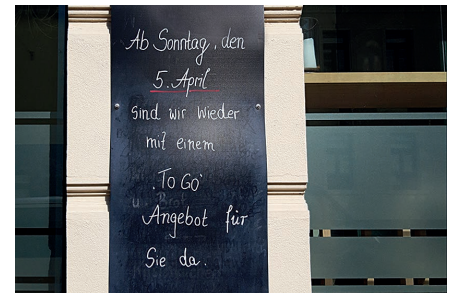 Ab Sonntag, den
5. April
sind wir wieder
mit einem
'To Go'
Angebot für
Sie da.